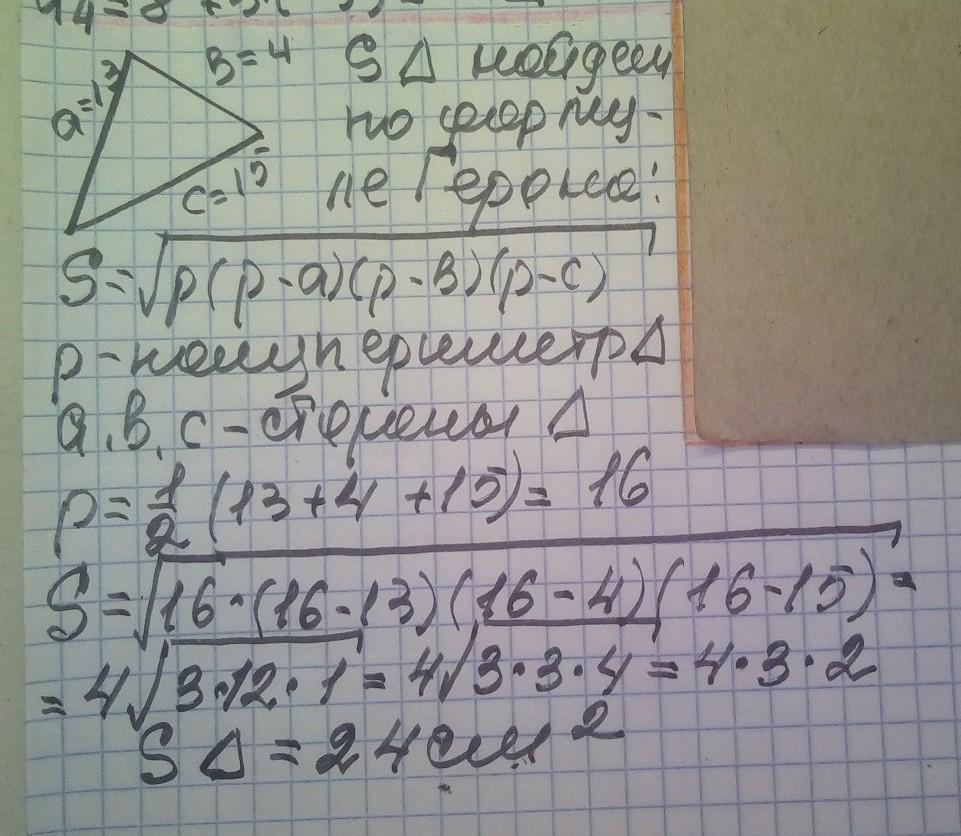 в = 4
a = 13
c = 15
S Δ найдем
по форму-
ле Герона:
S = √p(p-a)(p-в)(p-c)
p - полупериметр Δ
a, в, c - стороны Δ
p = 1/2 (13 + 4 + 15) = 16
S = √16·(16-13)(16-4)(16-15) =
= 4√3·12·1 = 4√3·3·4 = 4·3·2
S Δ = 24 см²